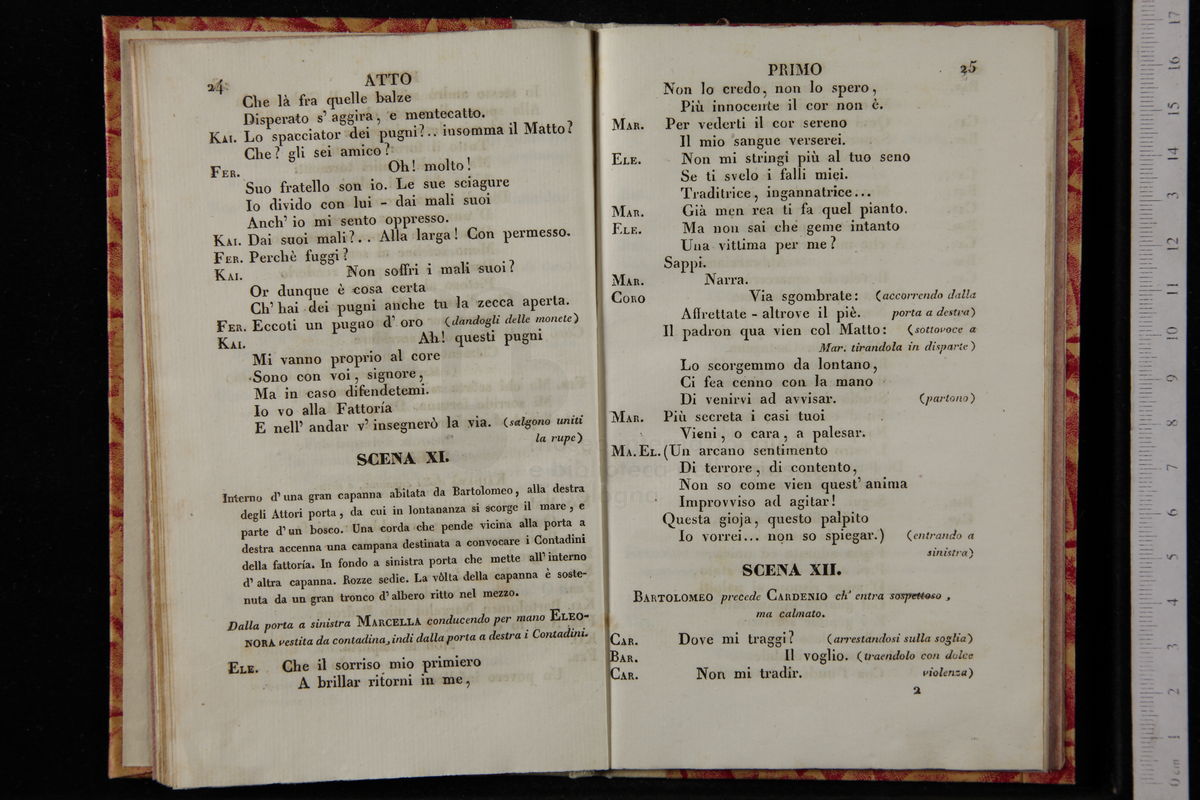 24 ATTO
Che là fra quelle balze
Disperato s' aggira, e mentecatto.
KAI. Lo spacciator dei pugni?.. insomma il Matto?
Che? gli sei amico?
FER. Oh! molto!
Suo fratello son io. Le sue sciagure
Io divido con lui - dai mali suoi
Anch' io mi sento oppresso.
KAI. Dai suoi mali?.. Alla larga! Con permesso.
FER. Perchè fuggi?
KAI. Non soffri i mali suoi?
Or dunque è cosa certa
Ch' hai dei pugni anche tu la zecca aperta.
FER. Eccoti un pugno d' oro (dandogli delle monete)
KAI. Ah! questi pugni
Mi vanno proprio al core
Sono con voi, signore,
Ma in caso difendetemi.
Io vo alla Fattoría
E nell' andar v' insegnerò la via. (salgono uniti
la rupe)
SCENA XI.
Interno d' una gran capanna abitata da Bartolomeo, alla destra
degli Attori porta, da cui in lontananza si scorge il mare, e
parte d' un bosco. Una corda che pende vicina alla porta a
destra accenna una campana destinata a convocare i Contadini
della fattoría. In fondo a sinistra porta che mette all' interno
d' altra capanna. Rozze sedie. La vôlta della capanna è soste-
nuta da un gran tronco d' albero ritto nel mezzo.
Dalla porta a sinistra MARCELLA conducendo per mano ELEO-
NORA vestita da contadina, indi dalla porta a destra i Contadini.
ELE. Che il sorriso mio primiero
A brillar ritorni in me,
PRIMO 25
Non lo credo, non lo spero,
Più innocente il cor non è.
MAR. Per vederti il cor sereno
Il mio sangue verserei.
ELE. Non mi stringi più al tuo seno
Se ti svelo i falli miei.
Traditrice, ingannatrice...
MAR. Già men rea ti fa quel pianto.
ELE. Ma non sai che geme intanto
Una vittima per me?
Sappi.
MAR. Narra.
CORO Via sgombrate: (accorrendo dalla
Affrettate - altrove il piè. porta a destra)
Il padron qua vien col Matto: (sottovoce a
Mar. tirandola in disparte)
Lo scorgemmo da lontano,
Ci fea cenno con la mano
Di venirvi ad avvisar. (partono)
MAR. Più secreta i casi tuoi
Vieni, o cara, a palesar.
MA. EL. (Un arcano sentimento
Di terrore, di contento,
Non so come vien quest' anima
Improvviso ad agitar!
Questa gioja, questo palpito
Io vorrei... non so spiegar.) (entrando a
sinistra)
SCENA XII.
BARTOLOMEO precede CARDENIO ch' entra sospettoso,
ma calmato.
CAR. Dove mi traggi? (arrestandosi sulla soglia)
BAR. Il voglio. (traendolo con dolce
CAR. Non mi tradir. violenza)
2
0 cm 1 2 3 4 5 6 7 8 9 10 11 12 13 14 15 16 17